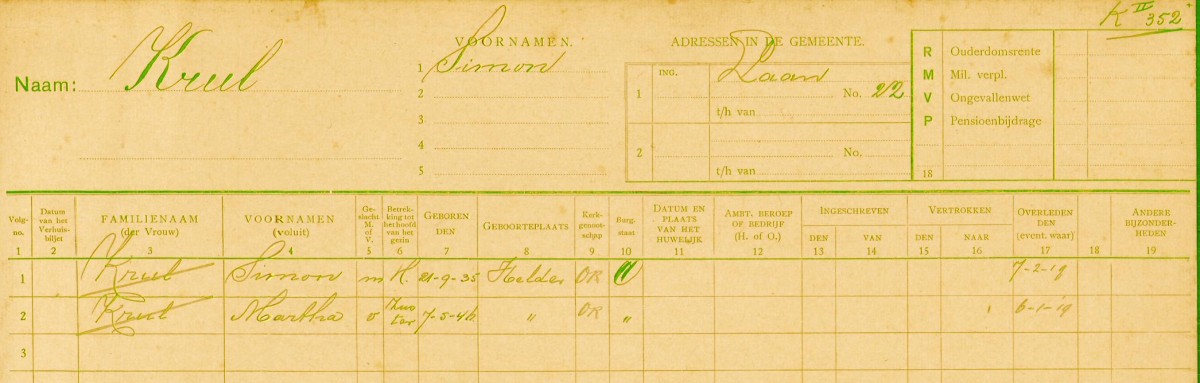 K II 352
Naam: Krul
VOORNAMEN.
1 Simon
2
3
4
5
ADRESSEN IN DE GEMEENTE.
ING.
1 Laan No. 22
t/h van
2 No.
t/h van
R Ouderdomsrente
M Mil. verpl.
V Ongevallenwet
P Pensioenbijdrage
18
Volg-no. Datum van het Verhuis-biljet FAMILIENAAM (der Vrouw) VOORNAMEN (voluit) Ge-slacht M. of V. Betrek-king tot het hoofd van het gezin GEBOREN DEN GEBOORTEPLAATS Kerk-genoot-schap Burg. staat DATUM EN PLAATS VAN HET HUWELIJK AMBT, BEROEP OF BEDRIJF (H. of O.) INGESCHREVEN DEN VAN VERTROKKEN DEN NAAR OVERLEDEN DEN (event. waar) ANDERE BIJZONDER-HEDEN
1 2 3 4 5 6 7 8 9 10 11 12 13 14 15 16 17 18 19
1 Krul Simon m H. 21-9-35 Helder OR 7-2-19
2 Krul Martha v Zus ter 7-5-46 " OR " 6-1-19
3